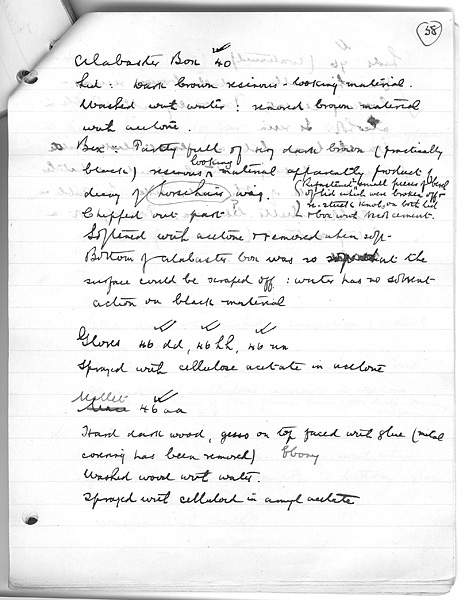 58
Alabaster Box 40
Lid: Dark brown resinous-looking material.
Washed with water: removed brown material
with acetone.
Box: Partly full of very dark brown (practically
black) resinous looking material apparently product of
decay of horsehair wig. (Repositioned small pieces of
of lid which were broken off &
re-stuck knob, on both lid
Chipped out part. & box with Necol cement.
Softened with acetone & removed when soft.
Bottom of alabaster box was so that the
surface could be scraped off: water has no solvent
action on black material
Gloves 46 dd, 46 hh, 46 nn
Sprayed with cellulose acetate in acetone
Mallet
46 aa
Hard dark wood, gesso on top faced with glue (metal
covering has been removed) Ebony
Washed wood with water.
Sprayed with celluloid in amyl acetate